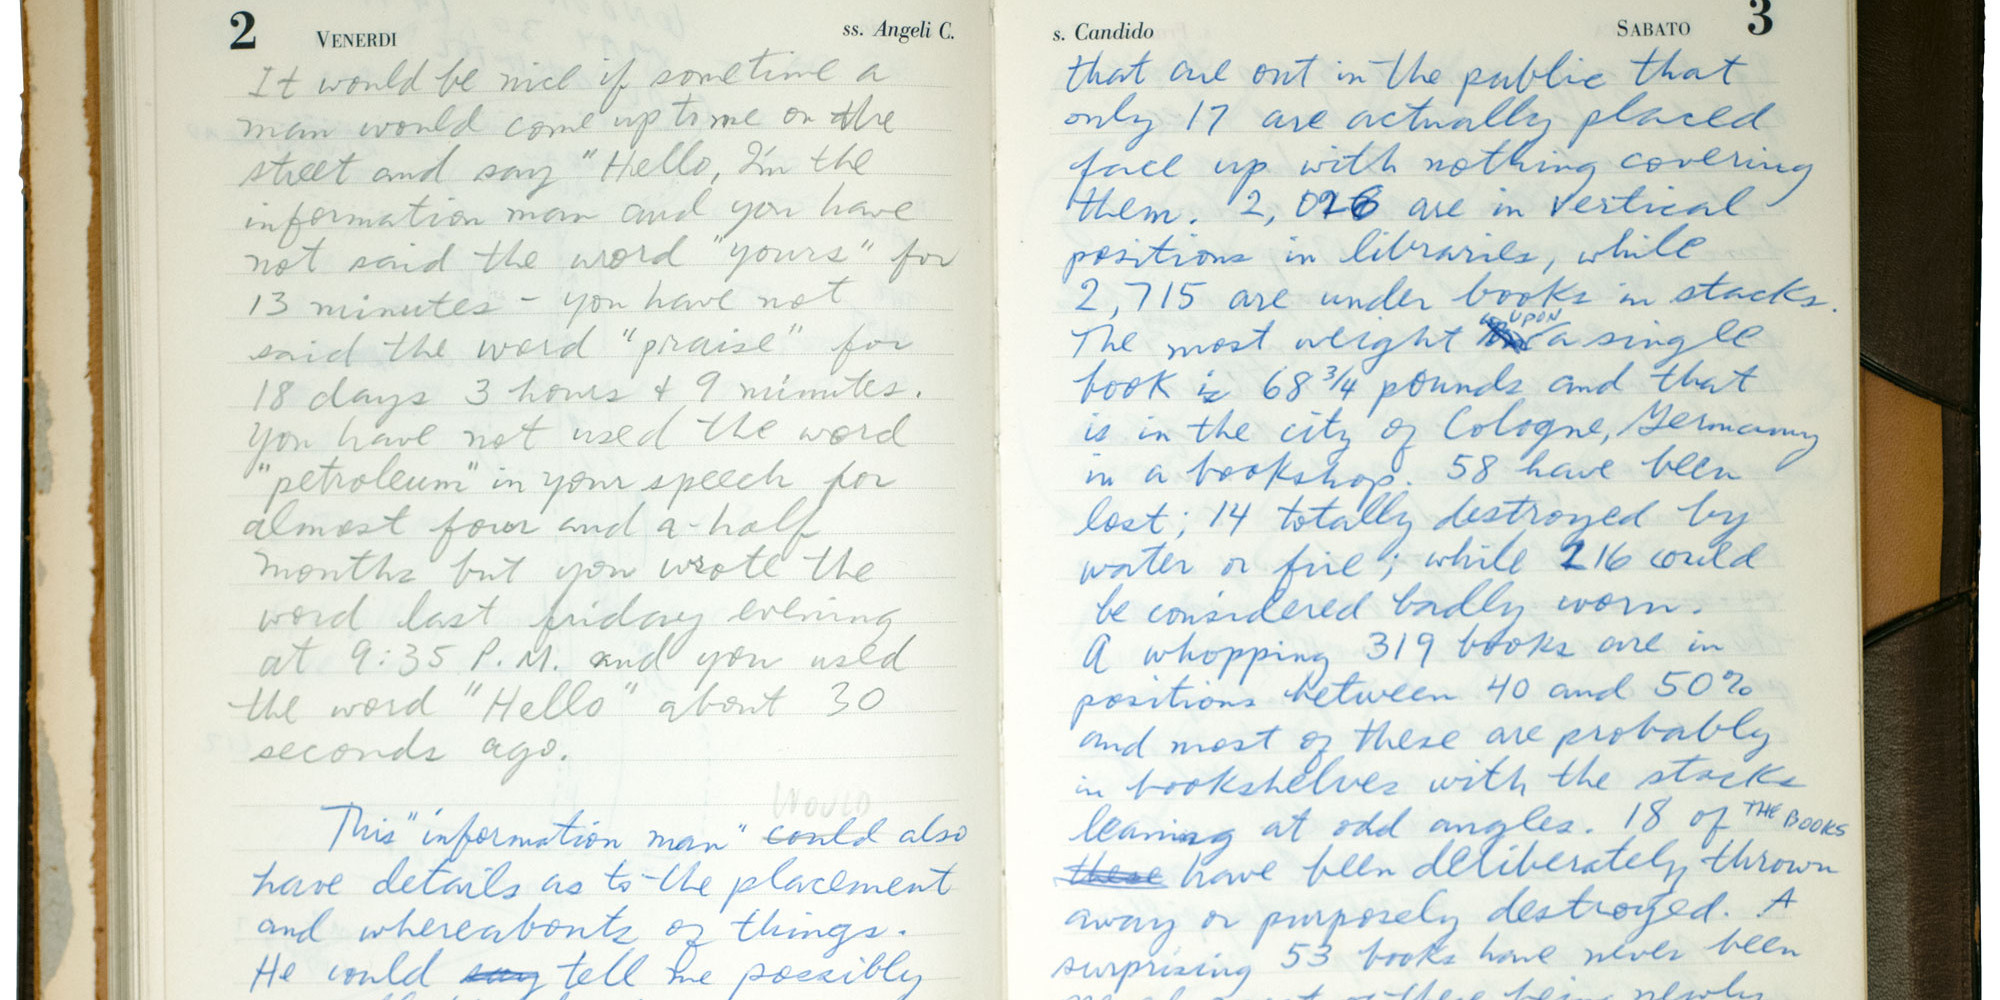 2 VENERDI ss. Angeli C.
It would be nice if sometime a
man would come up to me on the
street and say "Hello, I'm the
information man and you have
not said the word "yours" for
13 minutes – you have not
said the word "praise" for
18 days 3 hours & 9 minutes.
You have not used the word
"petroleum" in your speech for
almost four and a-half
months but you wrote the
word last friday evening
at 9:35 P.M. and you used
the word "Hello" about 30
seconds ago.
WOULD
This "information man" could also
have details as to the placement
and whereabouts of things.
He could say tell me possibly
s. Candido SABATO 3
that are out in the public that
only 17 are actually placed
face up with nothing covering
them. 2,026 are in vertical
positions in libraries, while
2,715 are under books in stacks.
UPON
The most weight a single
book is 68 3/4 pounds and that
is in the city of Cologne, Germany
in a bookshop. 58 have been
lost; 14 totally destroyed by
water or fire; while 216 could
be considered badly worn.
A whopping 319 books are in
positions between 40 and 50%
and most of these are probably
in bookshelves with the stacks
leaning at odd angles. 18 of THE BOOKS
these have been deliberately thrown
away or purposely destroyed. A
surprising 53 books have never been
of these being newly